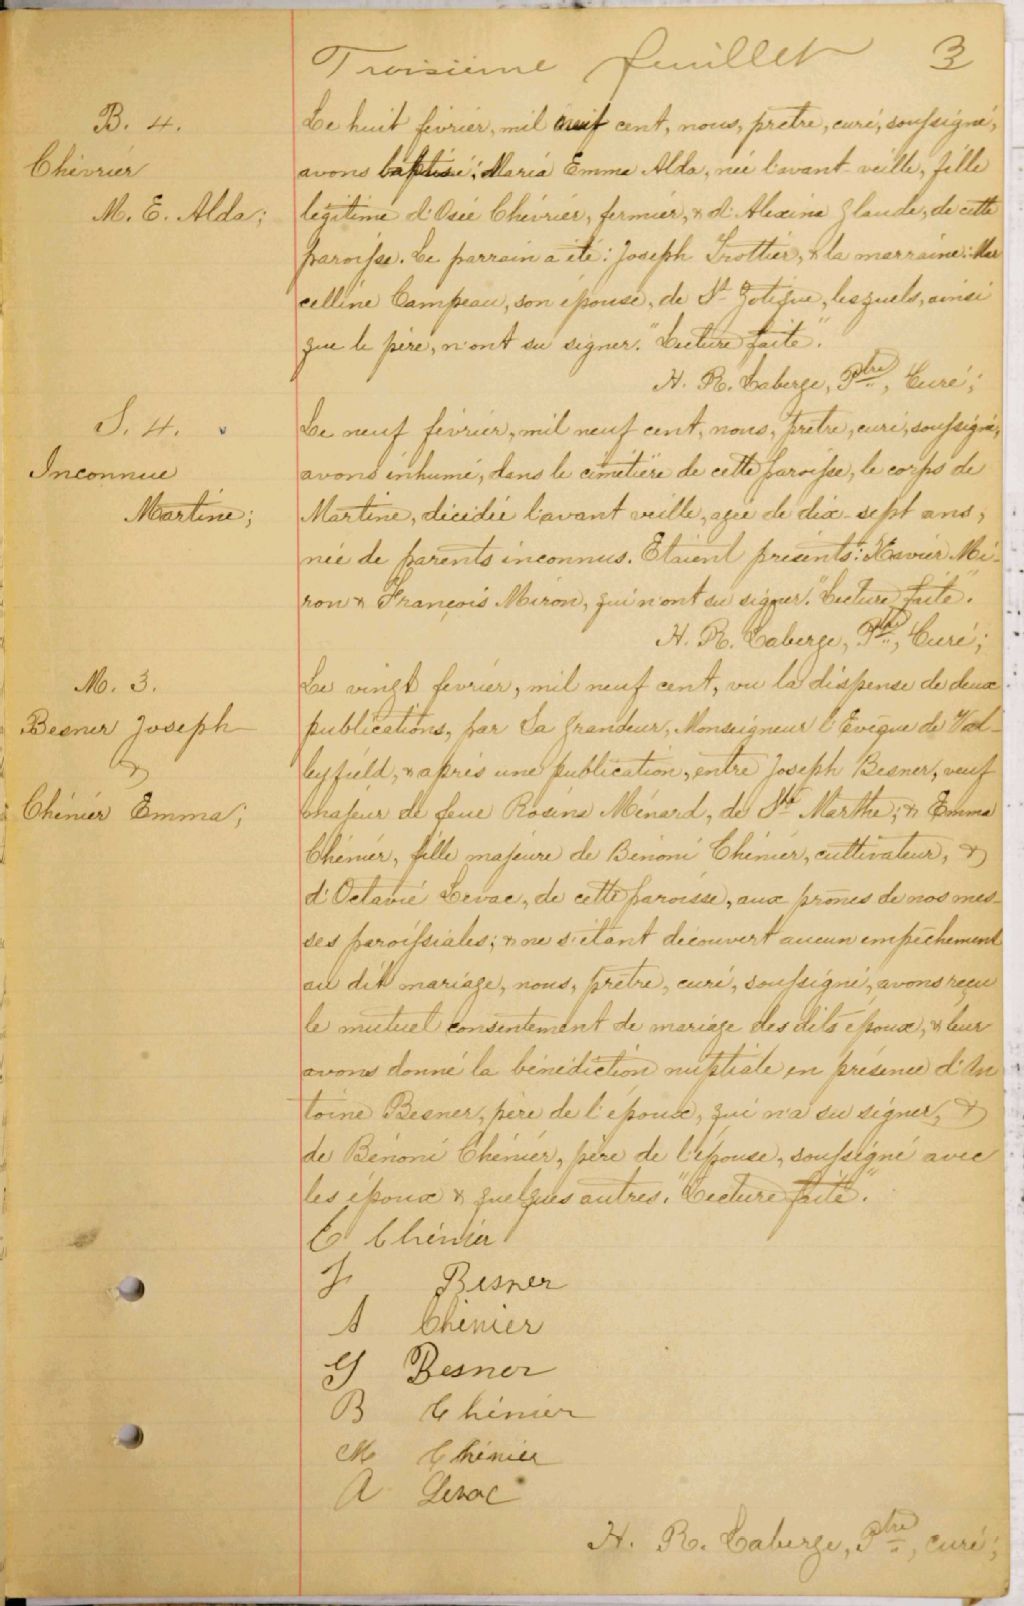 Troisième feuillet 3
B. 4.
Chévrier
M. E. Alda;
Le huit février, mil neuf cent, nous, prêtre, curé, soussigné,
avons baptisé: Maria Emma Alda, née l'avant-veille, fille
légitime d'Osée Chévrier, fermier, & d'Alexina Glaude, de cette
paroisse. Le parrain a été: Joseph Trottier, & la marraine: Mar
celline Campeau, son épouse, de St Zotique, lesquels, ainsi
que le père, n'ont su signer. "Lecture faite".
H. R. Laberge, Ptre, Curé;
S. 4.
Inconnue
Martine;
Le neuf février, mil neuf cent, nous, prêtre, curé, soussigné,
avons inhumé, dans le cimetière de cette paroisse, le corps de
Martine, décédée l'avant veille, agée de dix-sept ans,
née de parents inconnus. Etaient présents: Xavier Mi-
ron & François Miron, qui n'ont su signer. "Lecture faite".
H. R. Laberge, Ptre, Curé;
M. 3.
Besner Joseph
&
Chénier Emma;
Le vingt février, mil neuf cent, vu la dispense de deux
publications, par Sa Grandeur, Monseigneur l'Evêque de Val-
leyfield, & après une publication, entre Joseph Besner, veuf
majeur de feue Rosina Ménard, de Ste Marthe; & Emma
Chénier, fille majeure de Bénoni Chénier, cultivateur, &
d'Octavie Levac, de cette paroisse, aux prônes de nos mes-
ses paroissiales; & ne s'étant découvert aucun empêchement
au dit mariage, nous, prêtre, curé, soussigné, avons reçu
le mutuel consentement de mariage des dits époux, & leur
avons donné la bénédiction nuptiale en présence d'An
toine Besner, père de l'époux, qui n'a su signer, &
de Bénoni Chénier, père de l'épouse, soussigné avec
les époux & quelques autres. "Lecture faite".
E Chénier
J Besner
A Chénier
G Besner
B Chénier
M Chénier
A Levac
H. R. Laberge, Ptre, curé;